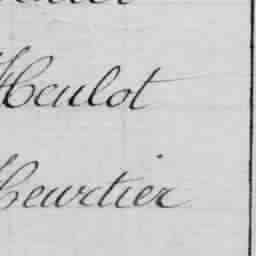 Heulot
Heurtier